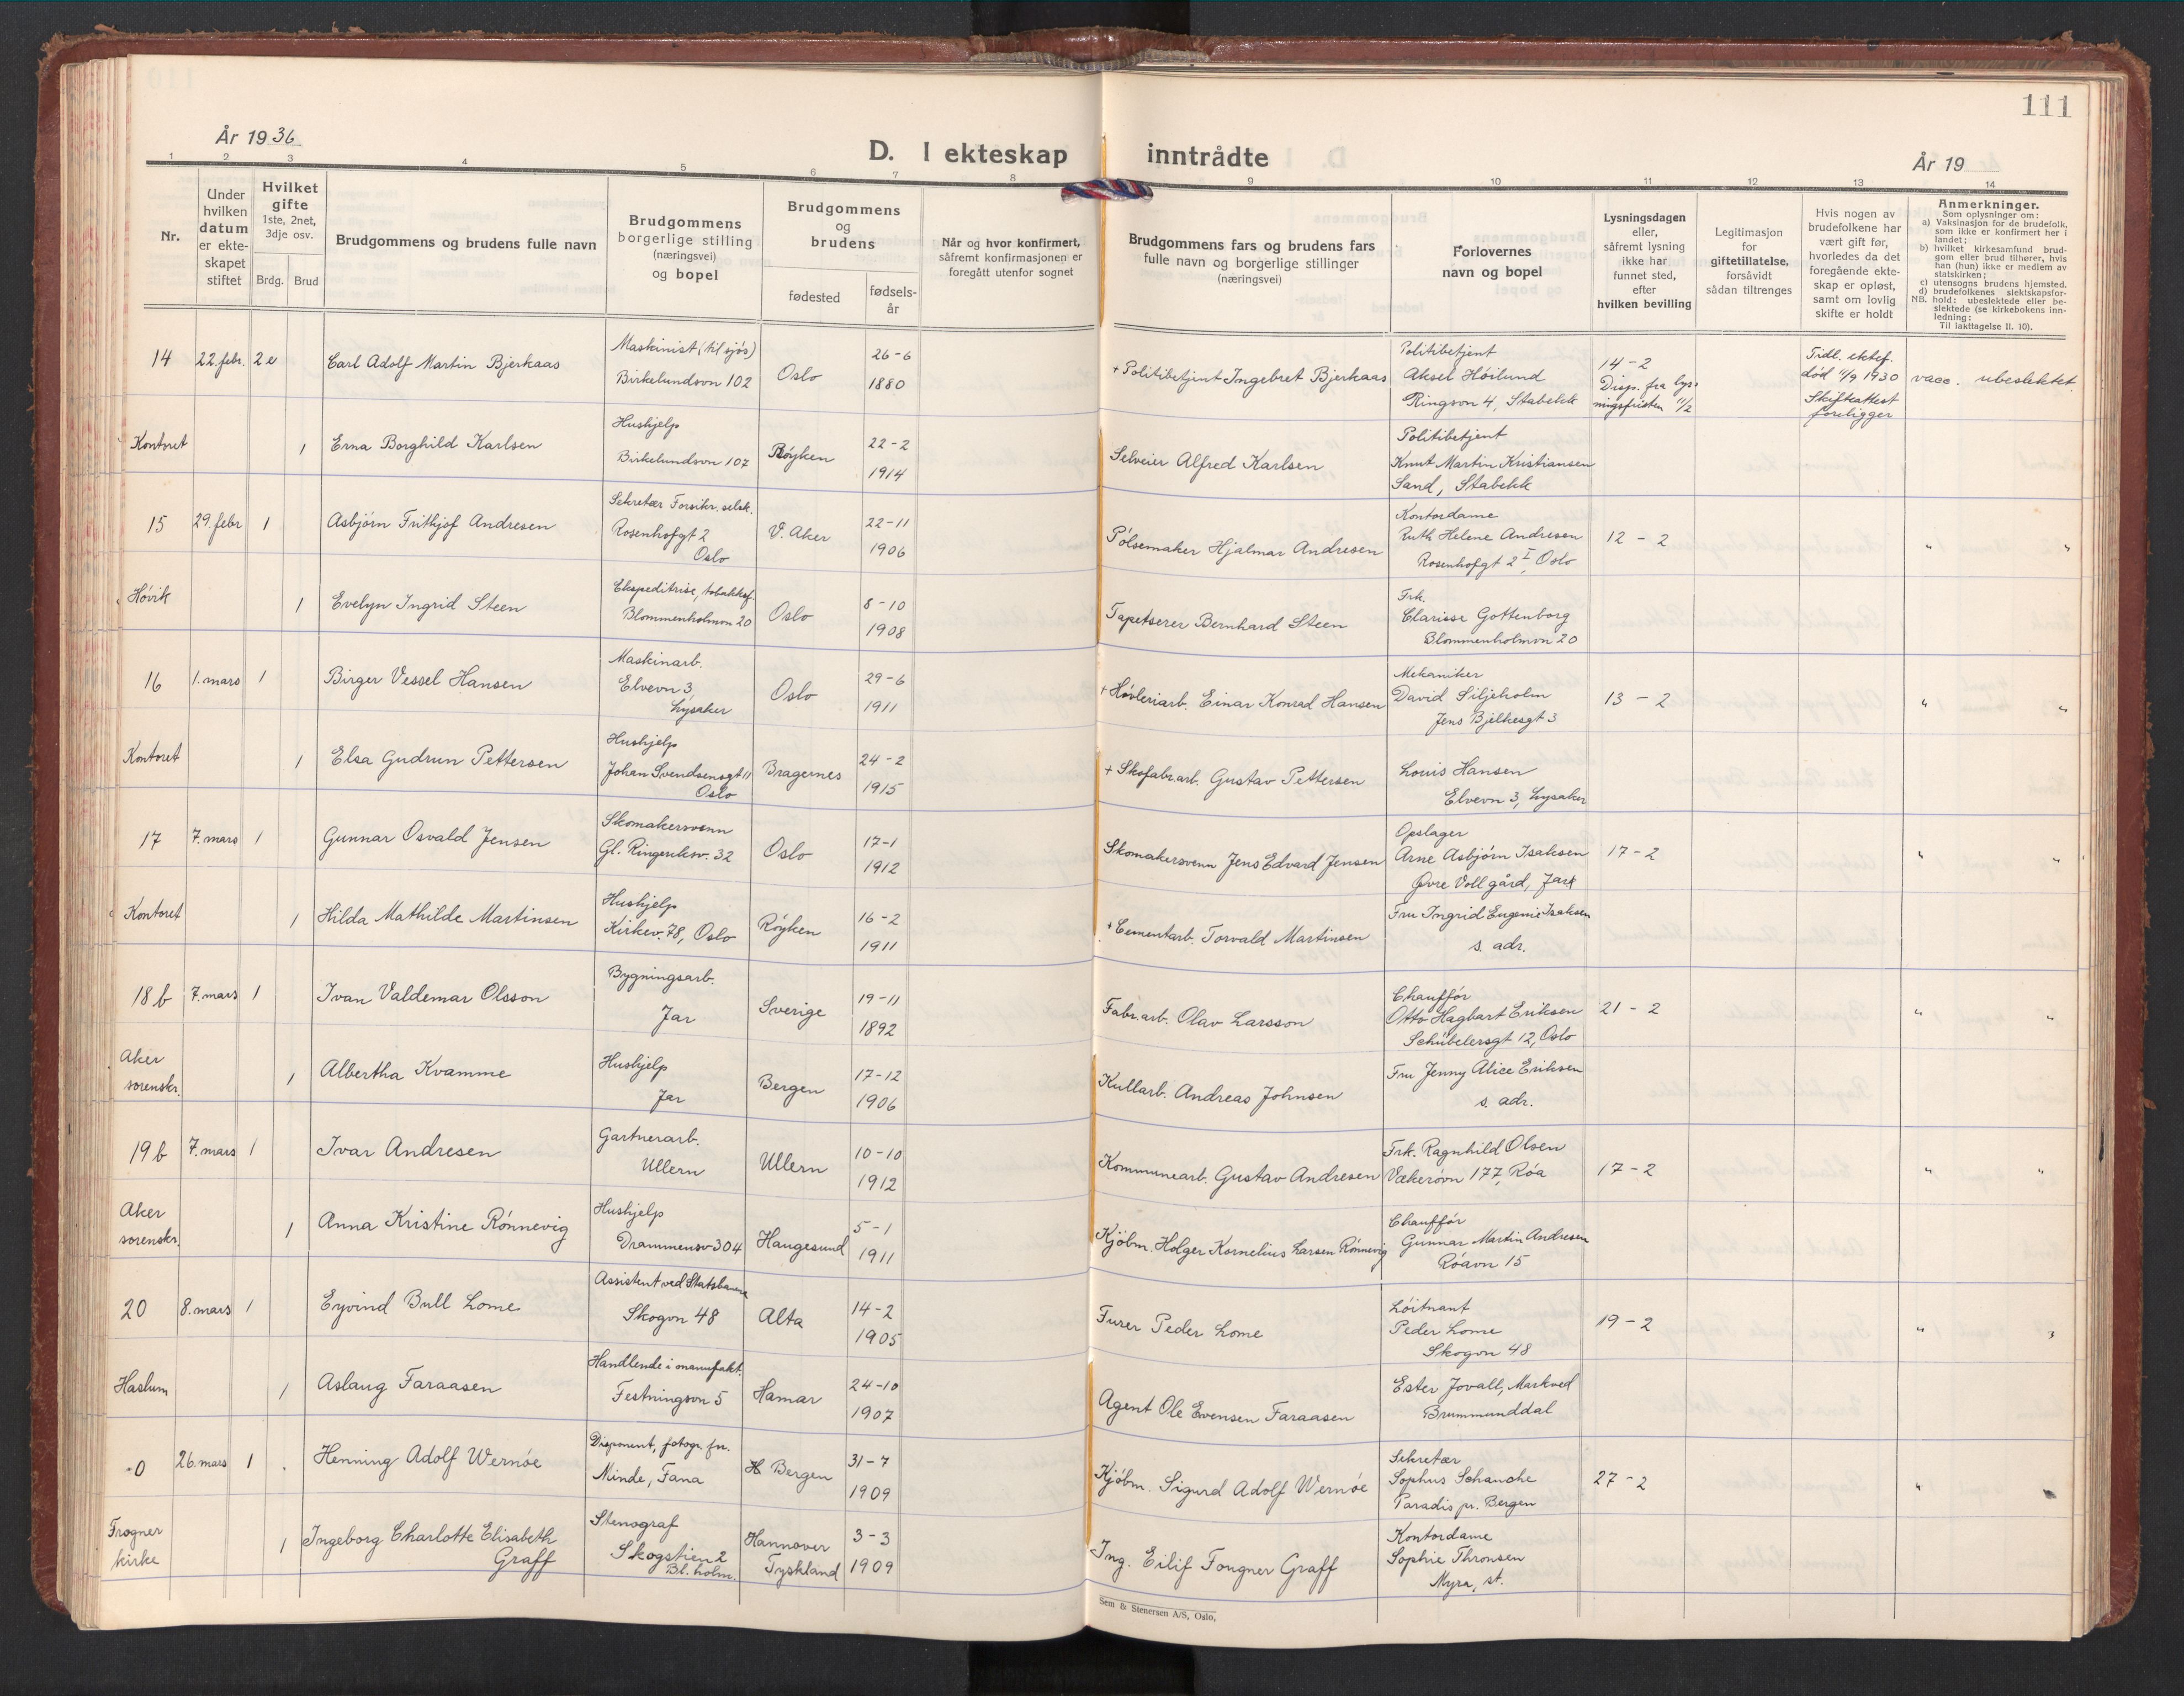 111
År 1936
D. I ekteskap inntrådte
År 19
1 2 3 4 5 6 7 8 9 10 11 12 13 14
Nr.
Under
hvilken
datum
er ekte-
skapet
stiftet
Hvilket
gifte
1ste, 2net,
3dje osv.
Brdg. Brud
Brudgommens og brudens fulle navn
Brudgommens
borgerlige stilling
(næringsvei)
og bopel
Brudgommens
og
brudens
fødested
fødsels-
år
Når og hvor konfirmert,
såfremt konfirmasjonen er
foregått utenfor sognet
Brudgommens fars og brudens fars
fulle navn og borgerlige stillinger
(næringsvei)
Forlovernes
navn og bopel
Lysningsdagen
eller,
såfremt lysning
ikke har
funnet sted,
efter
hvilken bevilling
Legitimasjon
for
giftetillatelse,
forsåvidt
sådan tiltrenges
Hvis nogen av
brudefolkene har
vært gift før,
hvorledes da det
foregående ekte-
skap er opløst,
samt om lovlig
skifte er holdt
Anmerkninger.
Som oplysninger om:
a) Vaksinasjon for de brudefolk,
som ikke er konfirmert her i
landet;
b) hvilket kirkesamfund brud-
gom eller brud tilhører, hvis
han (hun) ikke er medlem av
statskirken;
c) utensogns brudens hjemsted.
d) brudefolkenes slektskapsfor-
NB. hold: ubeslektede eller be-
slektede (se kirkebokens inn-
ledning:
Til iakttagelse II. 10).
14 22. febr. 2e
Carl Adolf Martin Bjerkaas
Maskinist (til sjøs)
Birkelundsvn 102
Oslo
26-6
1880
+ Politibetjent Ingebret Bjerkaas
Politibetjent
Aksel Høilund
Ringvon 4, Stabekk
14-2
Disp. fra lys-
ningsfristen 11/2
Tidl. ektef.
død 11/9 1930
Skifteattest
foreligger
vacc. ubeslektet.
Kontoret 1
Erna Borghild Karlsen
Hushjelp
Birkelundsvn 107
Røyken
22-2
1914
Selveier Alfred Karlsen
Politibetjent
Knut Martin Kristiansen
Sand, Stabekk
15 29. febr 1
Asbjørn Frithjof Andresen
Sekretær Forsikr. selsk.
Rosenhofgt 2
Oslo
V. Aker
22-11
1906
Pølsemaker Hjalmar Andresen
Kontordame
Ruth Helene Andresen
Rosenhofgt 2 I, Oslo
12-2
" "
Høvik 1
Evelyn Ingrid Steen
Ekspeditrise, tobakksf.
Blommenholmvn 20
Oslo
8-10
1908
Tapetserer Bernhard Steen
Frk.
Clarisse Gottenborg
Blommenholmvn 20
16 1. mars 1
Birger Vessel Hansen
Maskinarb.
Elvevn 3,
Lysaker
Oslo
29-6
1911
+ Høvleriarb. Einar Konrad Hansen
Mekaniker
David Siljeholm
Jens Bjelkesgt 3
13-2
" "
Kontoret 1
Elsa Gudrun Pettersen
Hushjelp
Johan Svendsensgt 11
Oslo
Bragernes
24-2
1915
+ Skofabr.arb. Gustav Pettersen
Louis Hansen
Elvevn 3, Lysaker
17 7. mars 1
Gunnar Osvald Jensen
Skomakersvenn
Gl. Ringeriksv. 32
Oslo
17-1
1912
Skomakersvenn Jens Edvard Jensen
Opslager
Arne Asbjørn Isaksen
Øvre Voll gård, Jar
17-2
" "
Kontoret 1
Hilda Mathilde Martinsen
Hushjelp
Kirkev. 78, Oslo
Røyken
16-2
1911
+ Cementarb. Torvald Martinsen
Fru Ingrid Eugenie Isaksen
s. adr.
18 b 7. mars 1
Ivan Valdemar Olsson
Bygningsarb.
Jar
Sverige
19-11
1892
Fabr.arb. Olav Larsson
Chauffør
Otto Hagbart Eriksen
Schübelersgt 12, Oslo
21-2
" "
Aker
sorenskr. 1
Albertha Kvamme
Hushjelp
Jar
Bergen
17-12
1906
Kullarb. Andreas Johnsen
Fru Jenny Alice Eriksen
s. adr.
19 b 7. mars 1
Ivar Andresen
Gartnerarb.
Ullern
Ullern
10-10
1912
Kommunearb. Gustav Andresen
Frk. Ragnhild Olsen
Vækerøvn 177, Røa
17-2
" "
Aker
sorenskr. 1
Anna Kristine Rønnevig
Hushjelp
Drammensv 304
Haugesund
5-1
1911
Kjøbm. Holger Kornelius Larsen Rønnevig
Chauffør
Gunnar Martin Andresen
Røavn 15
20 8. mars 1
Eyvind Bull Lome
Assistent ved Statsbanene
Skogvn 48
Alta
14-2
1905
Furer Peder Lome
Løitnant
Peder Lome
Skogvn 48
19-2
" "
Haslum 1
Aslaug Faraasen
Handlende i manufakt.
Festningsvn 5
Hamar
24-10
1907
Agent Ole Evensen Faraasen
Ester Jovall, Markved
Brummunddal
0 26. mars 1
Henning Adolf Wernøe
Disponent, fotogr. fn.
Minde, Fana
Bergen
31-7
1909
Kjøbm. Sigurd Adolf Wernøe
Sekretær
Sophus Schanche
Paradis pr. Bergen
27-2
" "
Frogner
kirke 1
Ingeborg Charlotte Elisabeth
Graff
Stenograf
Skogstien 2
Bl. holm.
Hannover
Tyskland
3-3
1909
Ing. Eilif Fougner Graff
Kontordame
Sophie Thronsen
Myra, st.
Sem & Stenersen A/S, Oslo.